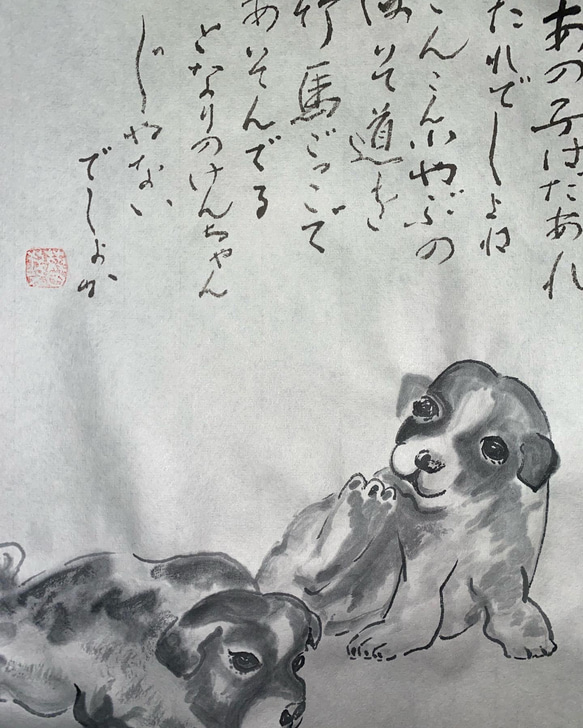 あの子はたあれ
たれでしょね
こんこん小やぶの
ほそ道を
竹馬ごっこで
あそんでる
となりのけんちゃん
じゃない
でしょか